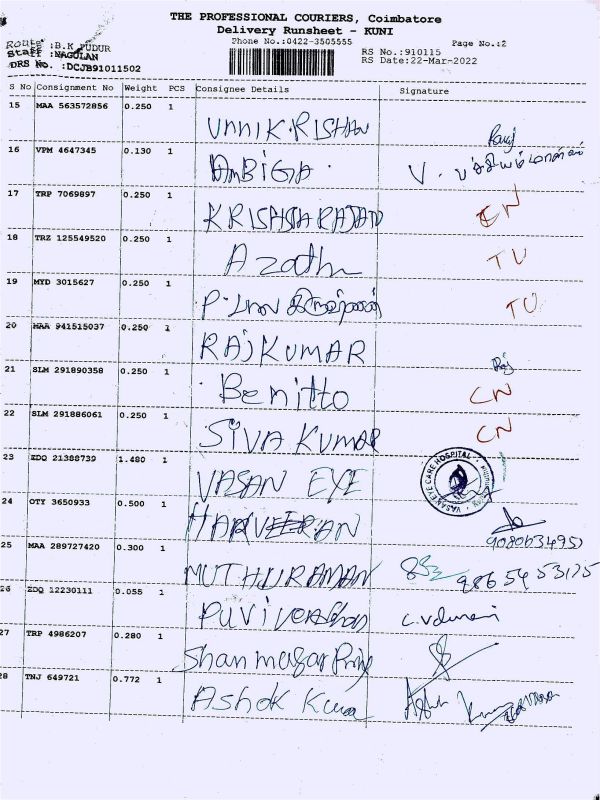 THE PROFESSIONAL COURIERS, Coimbatore
Delivery Runsheet - KUNI
Phone No.:0422-3505555 Page No.:2
Route :B.K PUDUR RS No.:910115
Staff :NAGULAN RS Date:22-Mar-2022
DRS No. :DCJB91011502
S No Consignment No Weight PCS Consignee Details Signature
15 MAA 563572856 0.250 1 UNNIKRISHAN
16 VPM 4647345 0.130 1 AMBIGA V.
17 TRP 7069897 0.250 1 KRISHNARAJAN CN
18 TRZ 125549520 0.250 1 Azath TU
19 MYD 3015627 0.250 1 TU
20 MAA 941515037 0.250 1 RAJKUMAR
21 SLM 291890358 0.250 1 Benitto CN
22 SLM 291886061 0.250 1 SIVA KUMAR CN
23 ZDQ 21388739 1.480 1 VASAN EYE VASAN EYE CARE HOSPITAL
24 OTY 3650933 0.500 1
25 MAA 289727420 0.300 1 MUTHURAMAN
26 ZDQ 12230111 0.055 1
27 TRP 4986207 0.280 1
28 TNJ 649721 0.772 1 Ashok Kumar